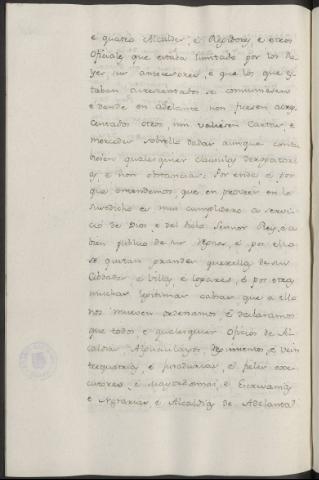 e quatro Alcaldes, e Regidores, e otros
Oficiales que estaba limitado por los Re-
yes sus antecesores, e que los que es-
taban acrecentados se consumiesen
e dende en adelante non fuesen acre-
centados otros, nin valiesen cartas, e
mercedes sobrello dadas aunque contu-
biesen qualesquier clausulas derogatorias
e non obstancias: Por ende, e por
que entendemos, que en proveer en lo
susodicho es mui cumplidero a servi-
cio de Dios, e del dicho Sennor Rey, e a
bien publico de sus Regnos, e por ello
se quitan grandes querellas de sus
Cibdades, e Villas, e Logares, e por otras
muchas legitimas cabsas, que a ello
nos mueven ordenamos, e declaramos
que todos, e qualesquier Oficios de Al-
caldias, Alguacilazgos, Regimientos, e Vein
tequatrias, e Juradurias, e fieles exe-
cutores, e Mayordomias, e Escrivanias
e Notarias, e Alcaldias de Adelanta-